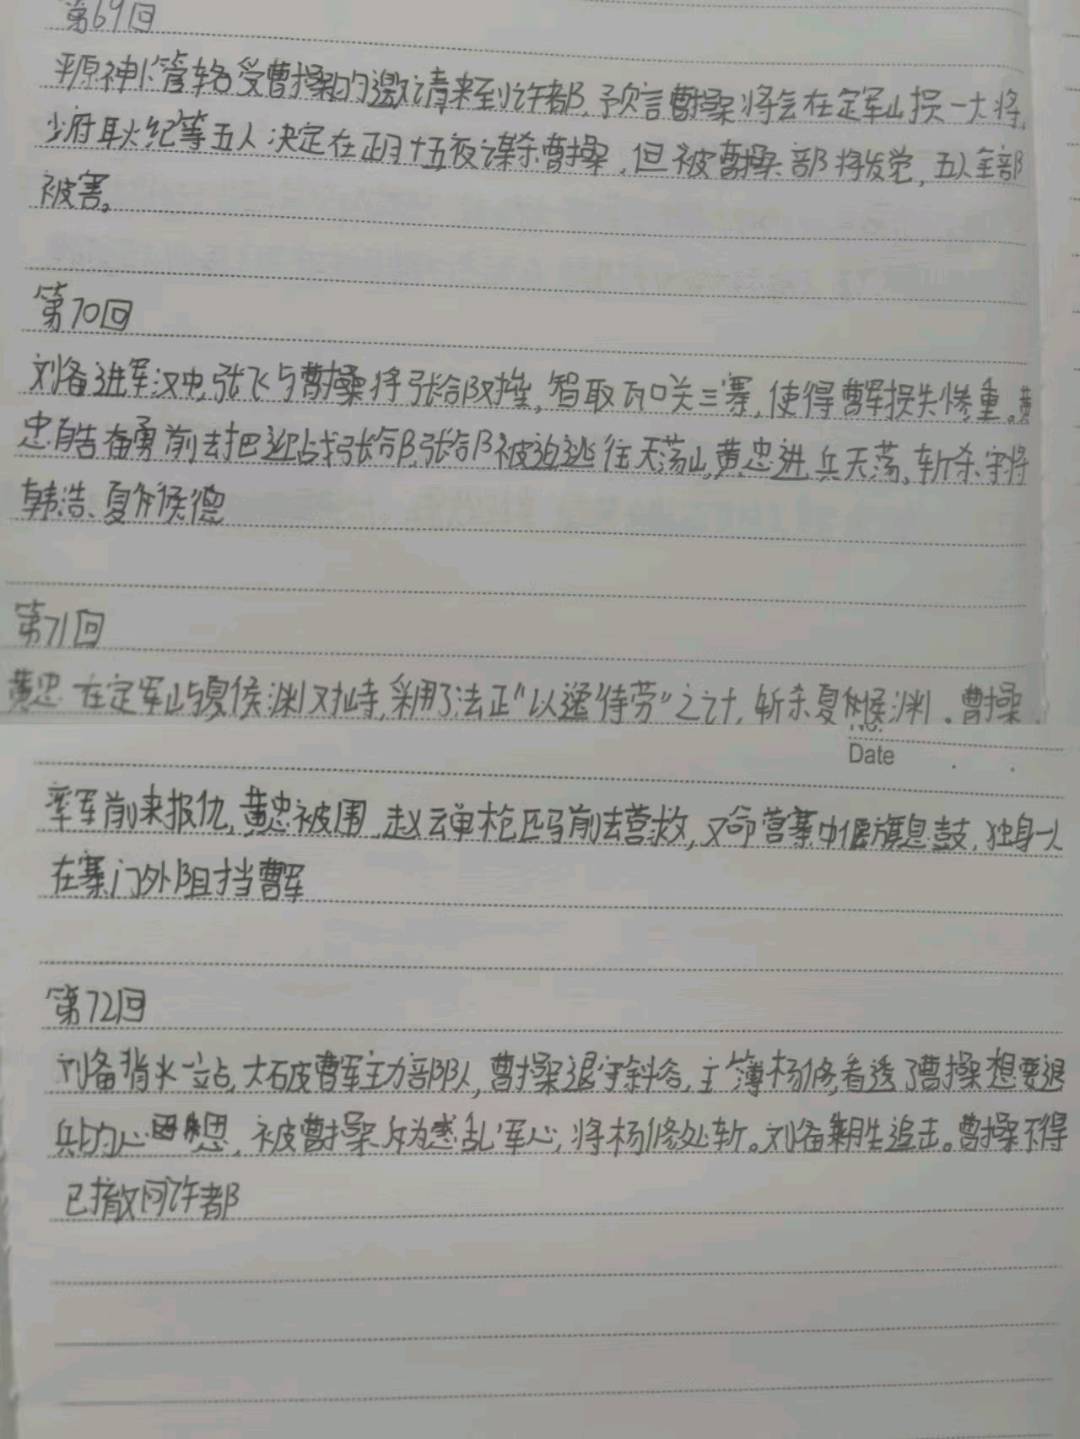 第69回
平原神卜管辂受曹操的邀请来到许都,予页言曹操将会在定军山损一大将,
少府耿纪等五人决定在正月十五夜谋杀曹操,但被曹操部将发觉,五人全部
被害。
第70回
刘备进军汉中,张飞与曹操将张郃对挫,智取瓦口关三寨,使得曹军损失惨重。黄
忠自告奋勇前去把迎战张郃,张郃被迫逃往天荡山,黄忠进兵天荡,斩杀守将
韩浩、夏侯德
第71回
黄忠在定军山与夏侯渊对峙,采用了法正“以逸待劳”之计,斩杀夏侯渊。曹操
No.
Date
率军前来报仇,黄忠被围,赵云单枪匹马前去营救,又命营寨中偃旗息鼓,独身一人
在寨门外阻挡曹军
第72回
刘备背水一站,大破曹军主力部队,曹操退守斜谷,主簿杨修,看透了曹操想要退
兵的心思,被曹操斥为惑乱军心,将杨修处斩。刘备乘胜追击。曹操不得
已撤回许都